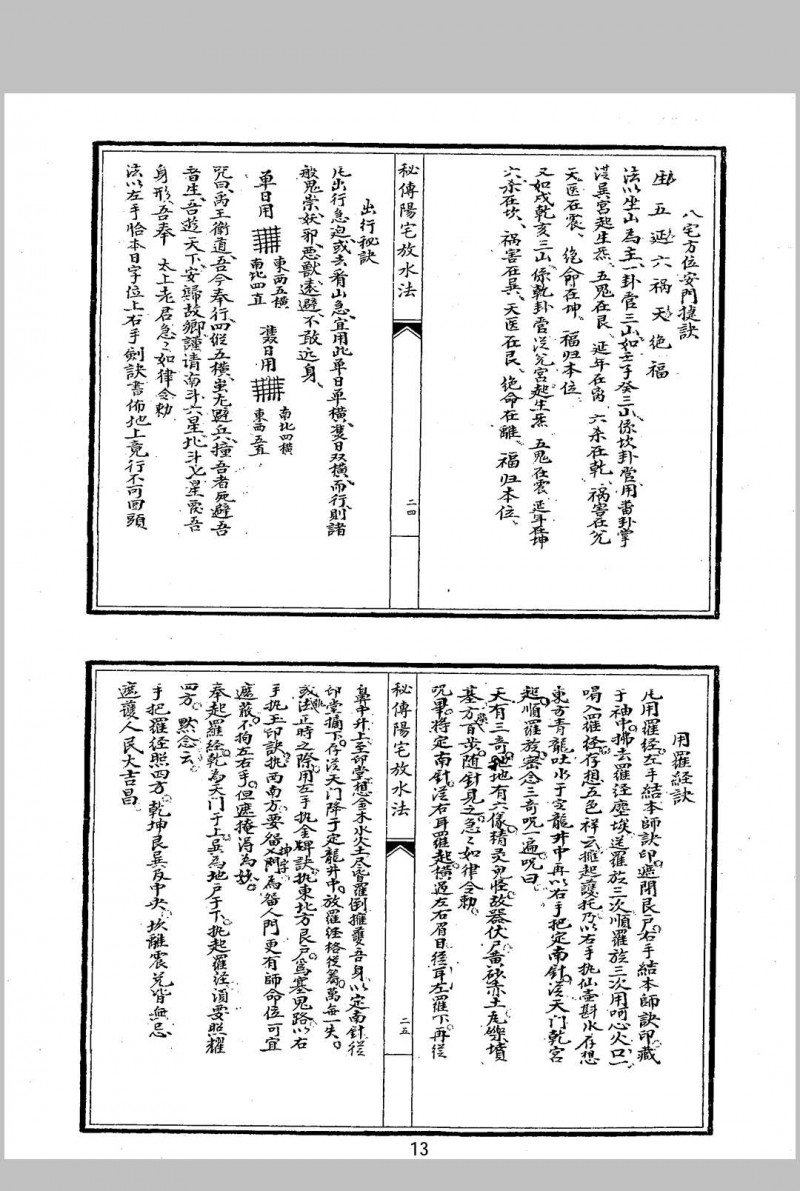 八宅方位安門捷訣
生五延六祸天绝福
法以坐山為主一卦管三山如壬子癸三山係坎卦管用番卦掌
從巽宮起生炁、五鬼在艮、延年在离、六杀在乾、祸害在兑
天医在震、绝命在坤、福归本位、
又如戌乾亥三山係乾卦管從兑宮起生炁、五鬼在震、延年在坤
六杀在坎、祸害在巽、天医在艮、绝命在離、福归本位、
秘傳陽宅放水法
二四
出行秘訣
凡出行急迫或去看山急宜用此單日單橫雙日双橫而行則諸
般鬼祟妖邪惡獸遠避不敢近身、
單日用
東西五橫
南北四直
雙日用
南北四橫
東西五直
咒曰禹王衛道吾今奉行四假五橫蚩尤避兵撞吾者死避吾
者生吾遊天下安歸故鄉謹请南斗六星北斗七星愿吾
身形吾奉 太上老君急々如律令勅
法以左手恰本日字位上右手劍訣書佈地上竟行不可回頭
用羅經訣
凡用羅经左手結本師訣印遮閉艮户右手結本師訣印藏
于袖中拂去羅经塵埃送羅旋三次順羅旋三次用呵心火口一
喝入羅经存想五色祥云擁起護托乃以右手执仙壺斟水存想
東方青龍吐水于定龍井中再以右手把定南針從天門乾宮
起順羅旋密念三奇咒一遍咒曰
天有三奇地有六儀精灵鬼怪故器伏尸黄砂赤土瓦爍墳
基方百步随針見之急々如律令勅
咒畢将定南針從右耳羅起横過左右眉目後耳左羅下再從
秘傳陽宅放水法
二五
鼻中升上至印堂想金木水火土尽皆羅倒擁護吾身以定南針從
印堂插下存從天門降于定龍井中放羅经格從萬萬無一失
或法正時之際用左手执金牌訣执東北方艮户為塞鬼路以右
手执玉印訣执西南方要留坤字门為留人門更有師命位可宜
遮蔽不拘左右手但遮掩涓為妙
奉起羅经乾為天门于上巽為地户于下执起羅经須要照耀
四方 默念云
手把羅经照四方乾坤艮巽及中央坎離震兑皆無忌
遮護人民大吉昌
13